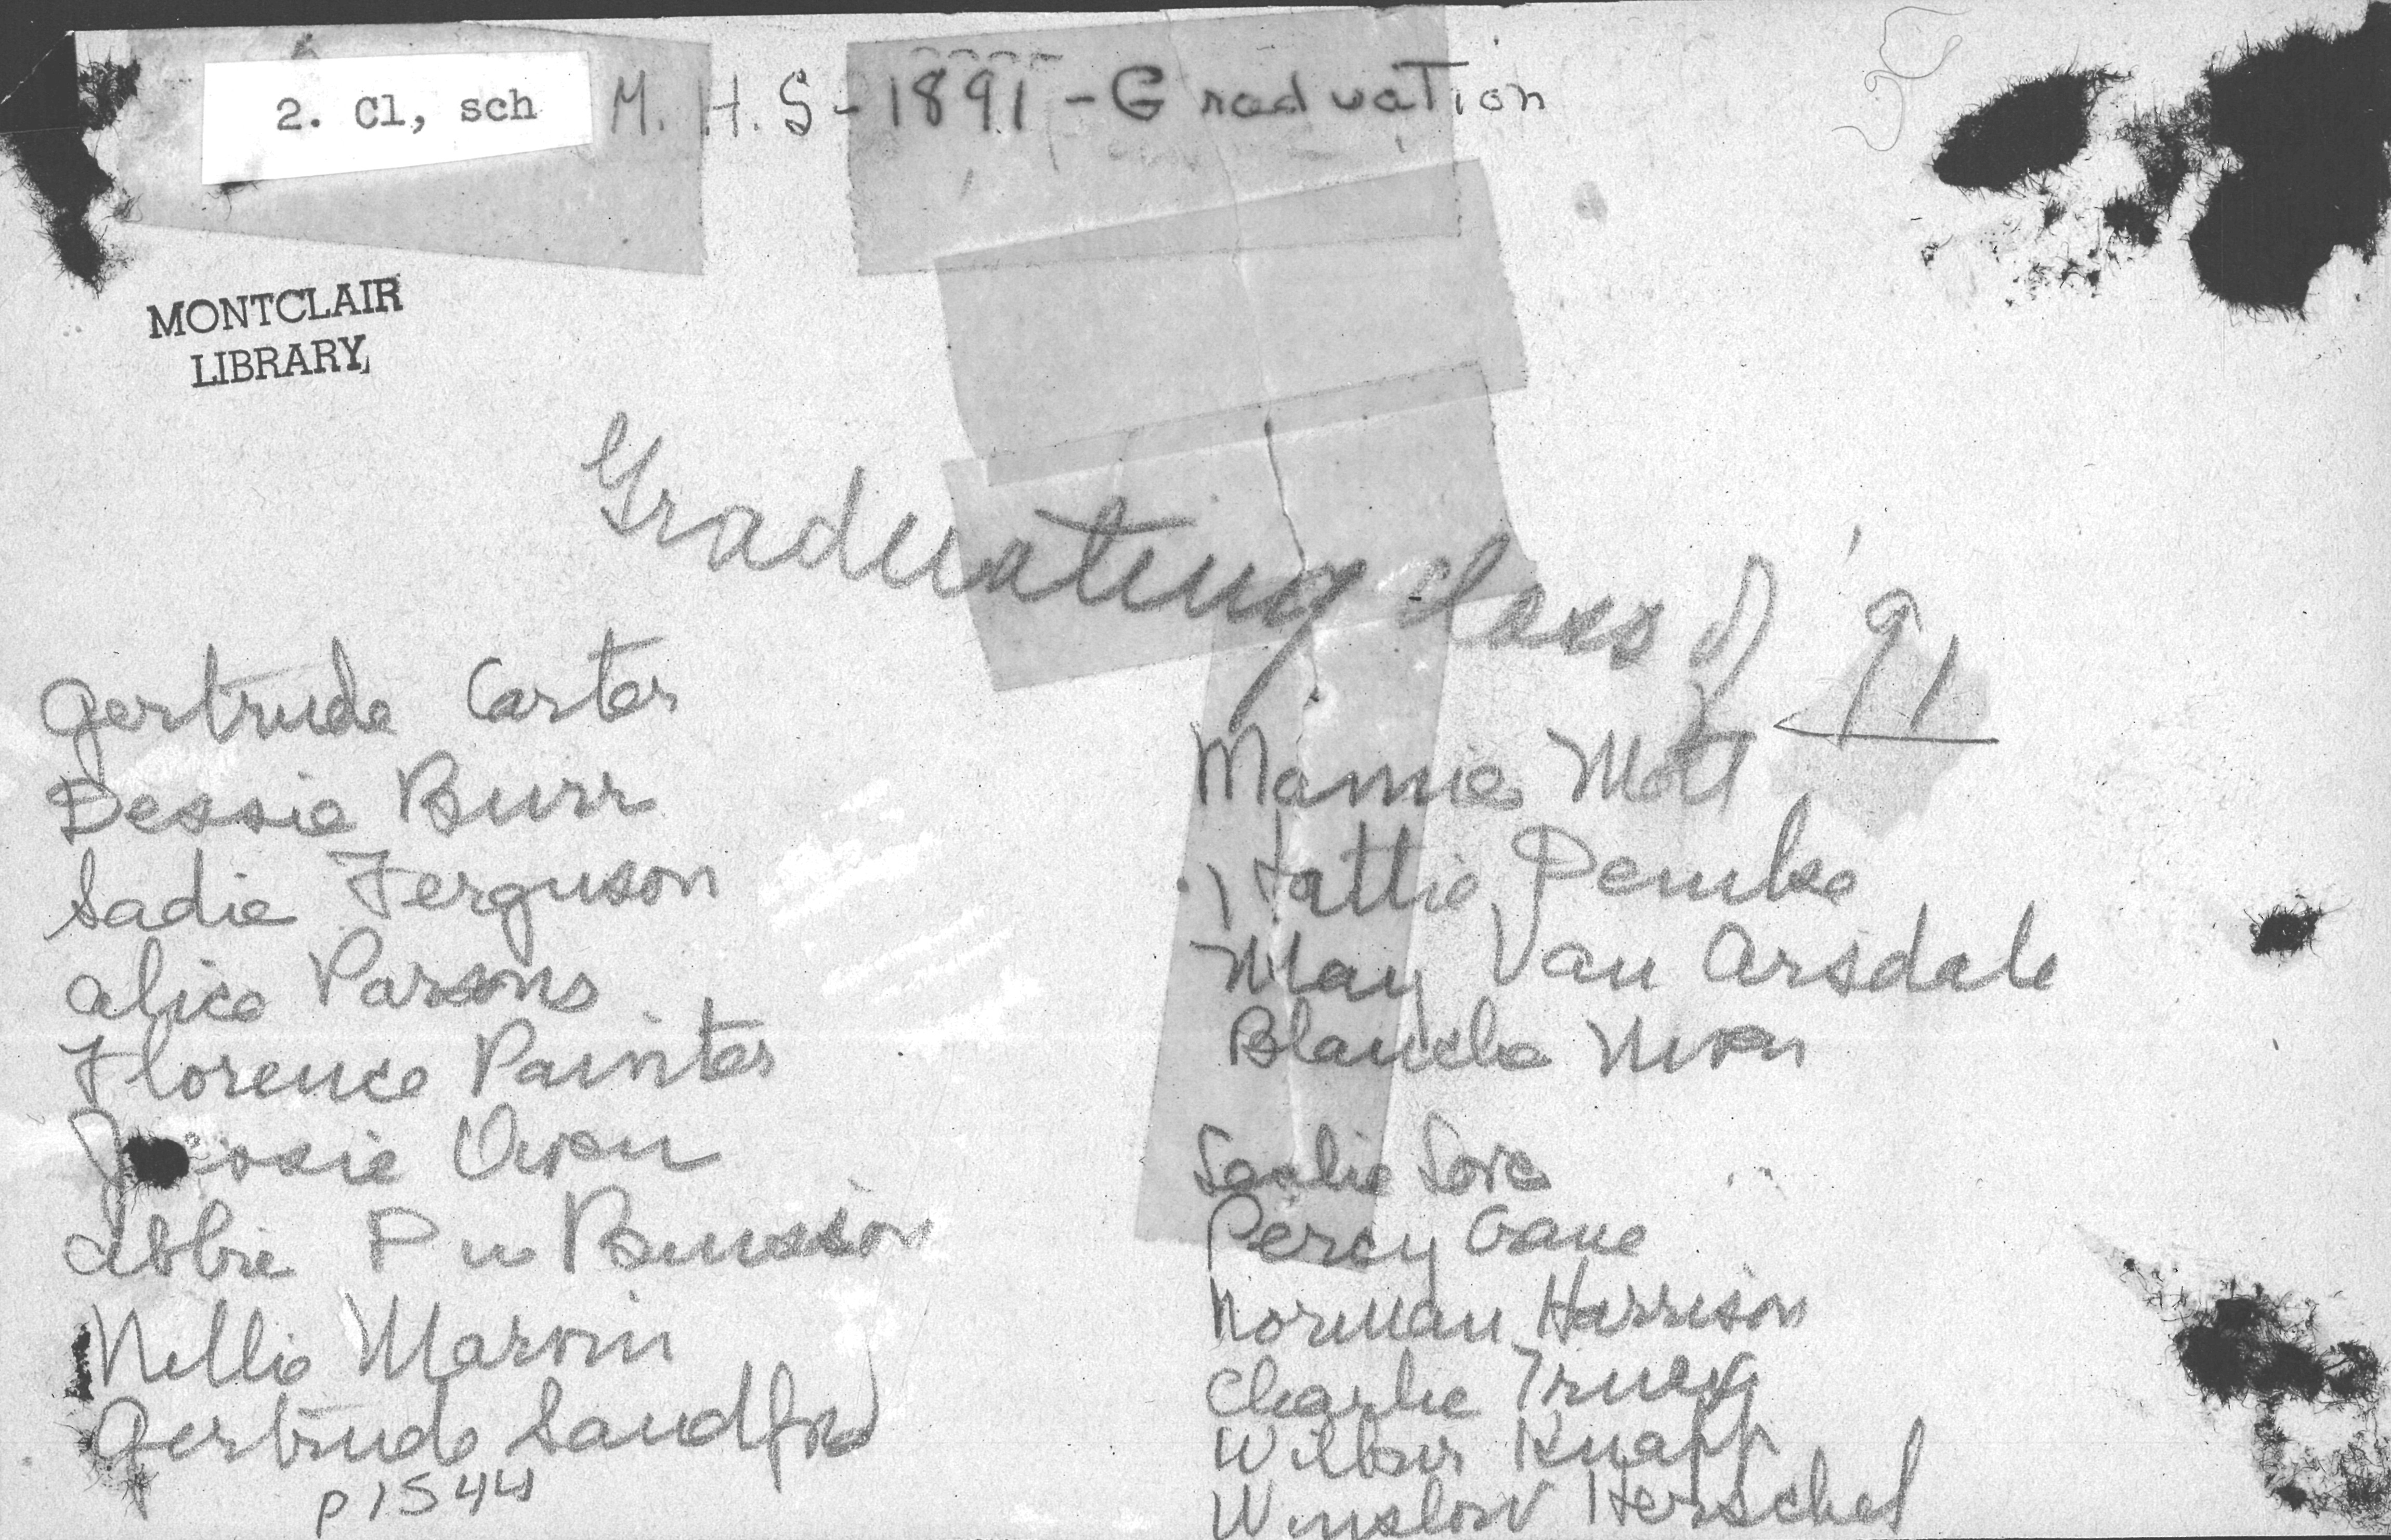 2. Cl, sch
M. H. S - 1891 - Graduation
MONTCLAIR
LIBRARY
Graduating Class of '91
Gertrude Carter
Bessie Burr
Sadie Ferguson
Alice Parsons
Florence Painter
Owen
Abbie
Nellie Marvin
Gertrude Sandford
p1544
Mamie Mott
Hattie
May Van Arsdale
Blanche
Percy
Norman Harrison
Charlie
Wilbur Knapp
Winslow Herschel